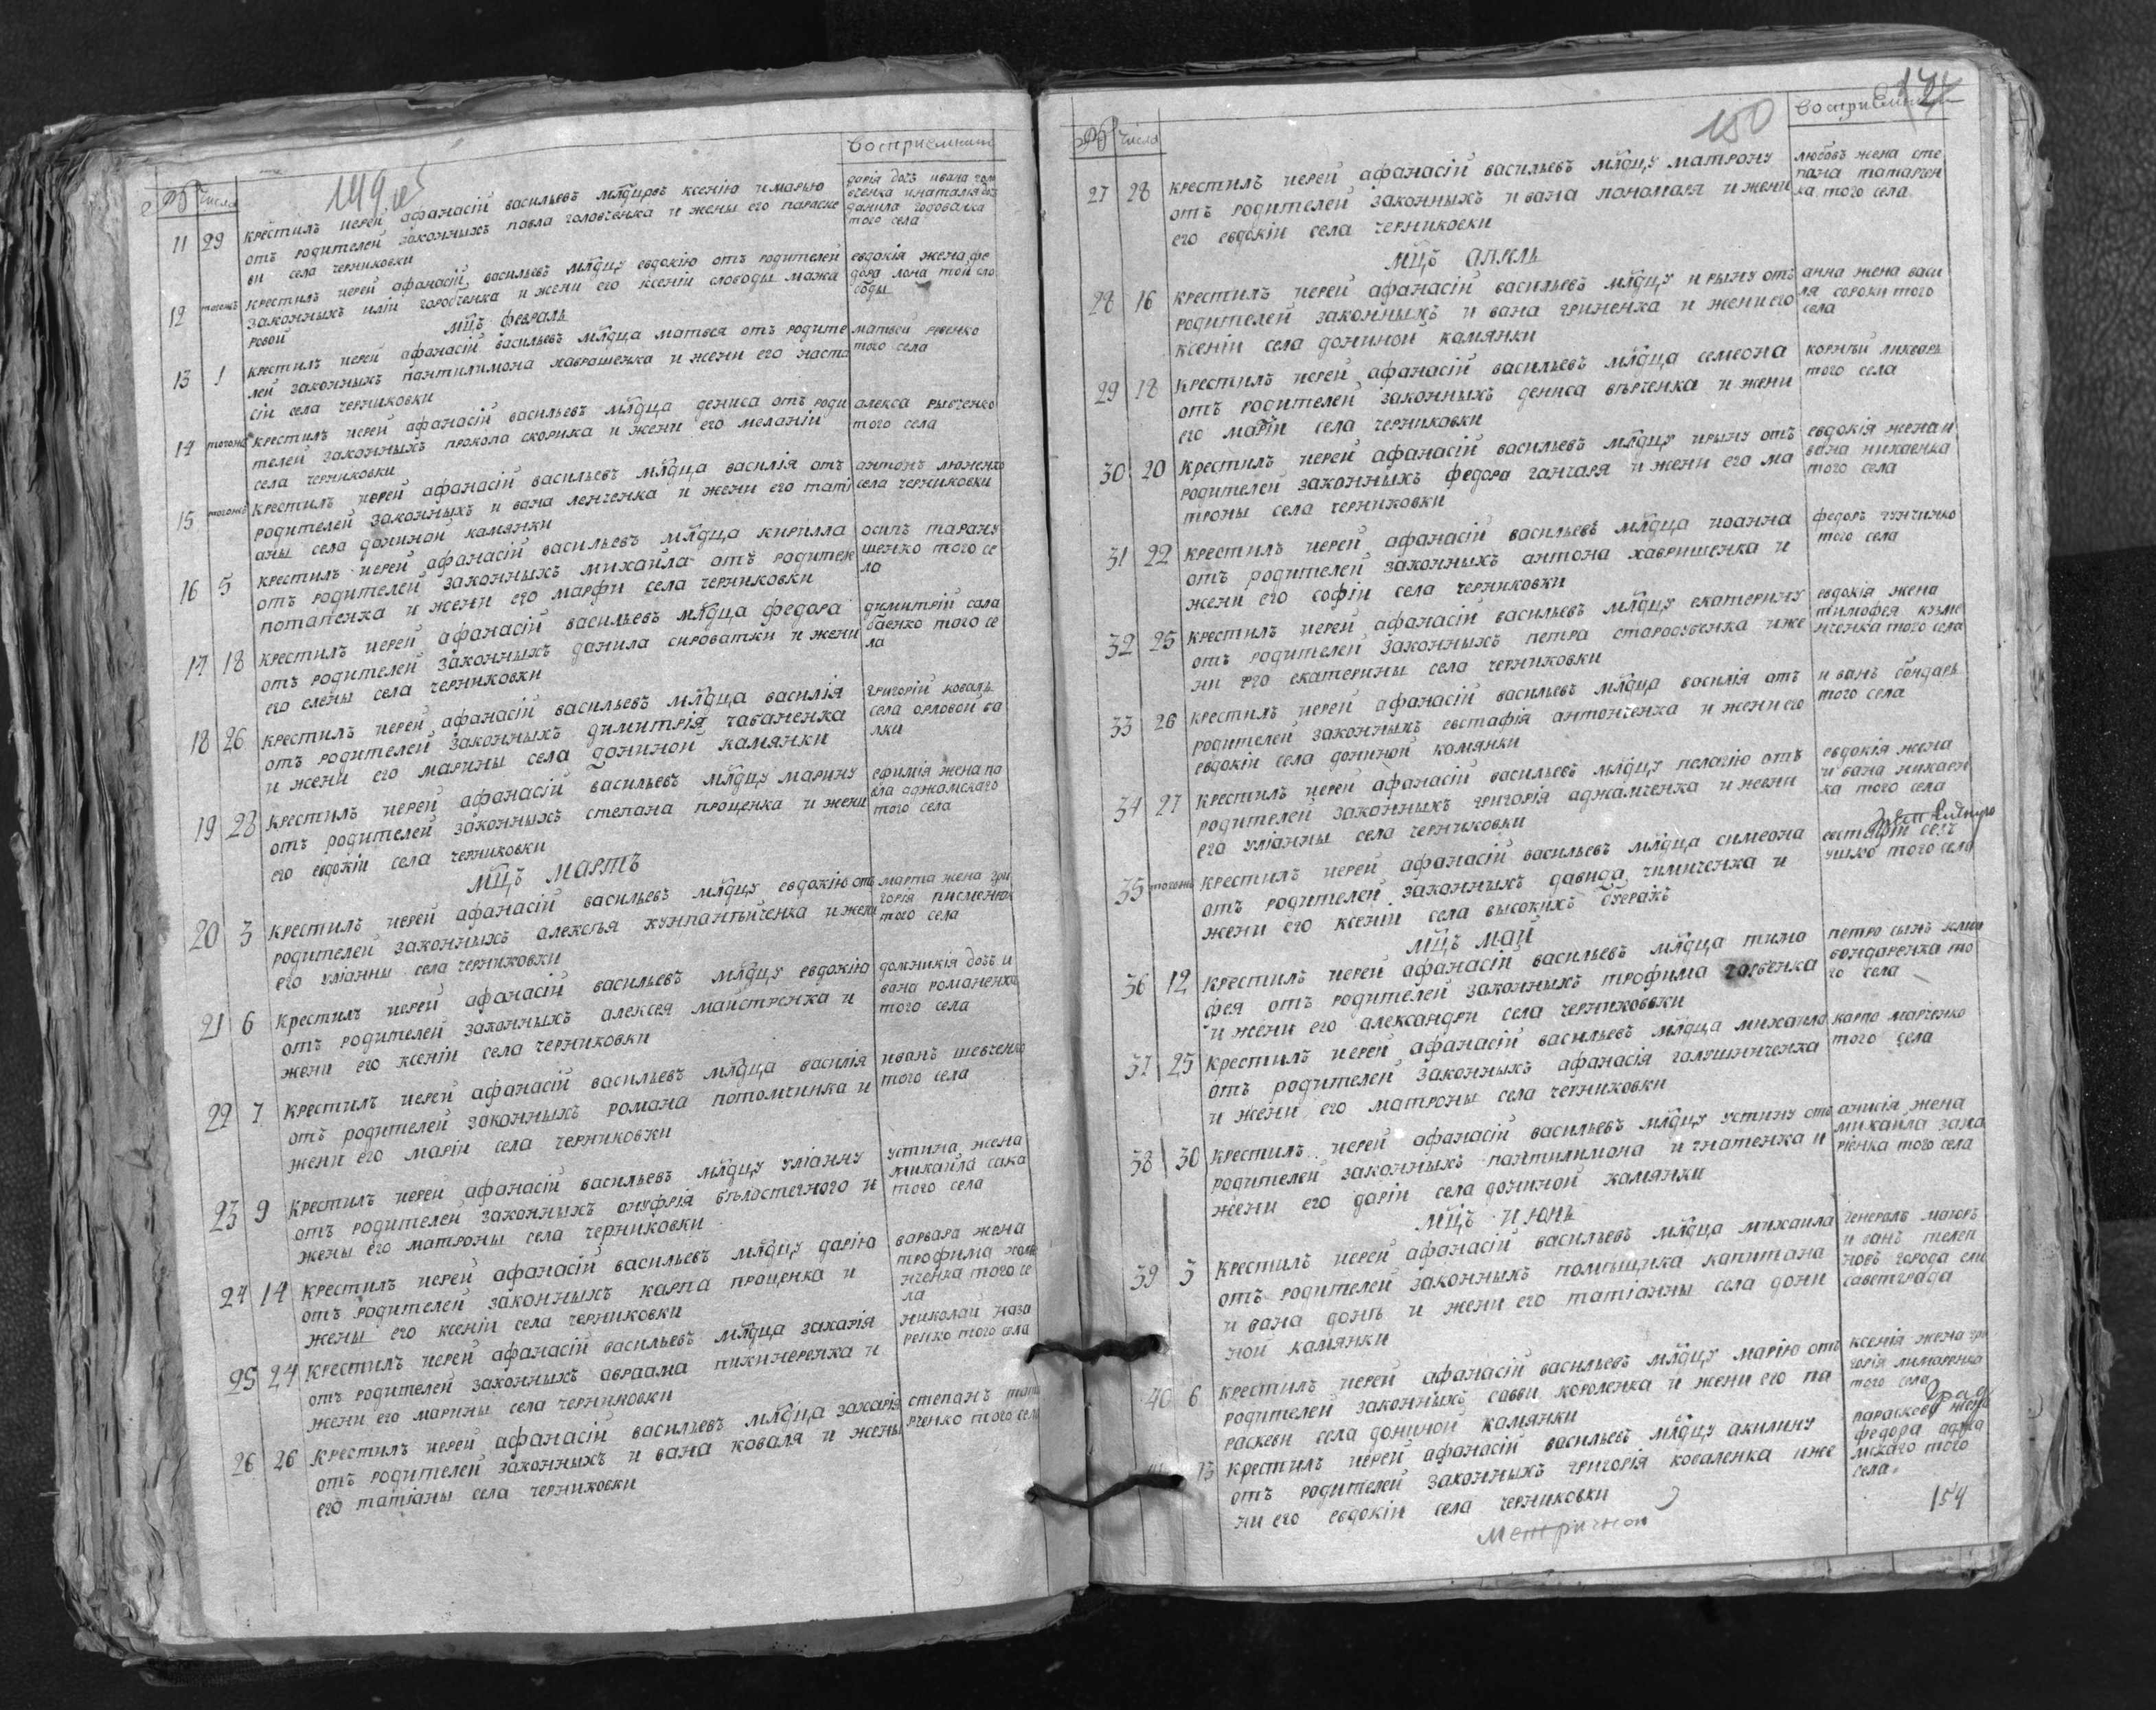 149 об
№ числа
восприемники
11 29 крестилъ иерей афанасій васильевъ млдцовъ ксенію и марью
отъ родителей законныхъ павла головченка и жены его параске
ви села черниковки
дарія дочь ивана голо
вченка и наталія дочь
данила годованка
того села
12 тогожъ крестилъ иерей афанасій васильевъ млдцу евдокію отъ родителей
законныхъ иліи горобченка и жени его ксеніи слободы мажа
ровой
евдокія жена фе
дора лона той сло
боды
мцъ февраль
13 1 крестилъ иерей афанасій васильевъ млдца матвея отъ родите
лей законныхъ пантилимона хаврошенка и жени его наста
сіи села черниковки
матвей ревенко
того села
14 тогожъ крестилъ иерей афанасій васильевъ млдца дениса отъ роди
телей законныхъ прокопа скорика и жени его меланіи
села черниковки
алекса рывченко
того села
15 тогожъ крестилъ иерей афанасій васильевъ млдца василія отъ
родителей законныхъ ивана ленченка и жени его таті
аны села дониной камянки
антонъ люненко
села черниковки
16 5 крестилъ иерей афанасій васильевъ млдца кирилла
отъ родителей законныхъ михаила отъ родител
потапенка и жени его марфи села черниковки
осипъ тарану
щенко того се
ла
17 18 крестилъ иерей афанасій васильевъ млдца федора
отъ родителей законныхъ данила сироватки и жени
его елены села черниковки
димитрій сала
баенко того се
ла
18 26 крестилъ иерей афанасій васильевъ млдца василія
отъ родителей законныхъ димитрія чабаненка
и жени его марины села дониной камянки
григорій коваль
села орловой ба
лки
19 28 крестилъ иерей афанасій васильевъ млдцу марину
отъ родителей законныхъ степана проценка и жени
его евдокіи села черниковки
ефимія жена па
вла аджамскаго
того села
мцъ мартъ
20 3 крестилъ иерей афанасій васильевъ млдцу евдокію отъ
родителей законныхъ алексѣя кунпанѣйченка и жени
его уліанны села черниковки
марта жена гри
горія писменной
того села
21 6 крестилъ иерей афанасій васильевъ млдцу евдокію
отъ родителей законныхъ алексея маистренка и
жени его ксеніи села черниковки
домникія дочь и
вана романенка
того села
22 7 крестилъ иерей афанасій васильевъ млдца василія
отъ родителей законныхъ романа потомчинка и
жени его маріи села черниковки
иванъ шевченко
того села
23 9 крестилъ иерей афанасій васильевъ млдцу уліанну
отъ родителей законныхъ онуфрія бѣлостечного и
жены его матроны села черниковки
устина жена
михаила сака
того села
24 14 крестилъ иерей афанасій васильевъ млдцу дарію
отъ родителей законныхъ карпа проценка и
жены его ксеніи села черниковки
варвара жена
трофима холо
нченка того се
ла
25 24 крестилъ иерей афанасій васильевъ млдца захарія
отъ родителей законныхъ авраама пикинеренка и
жени его марины села черниковки
николай наза
ренко того села
26 26 крестилъ иерей афанасій васильевъ млдца захарія
отъ родителей законныхъ ивана коваля и жены
его татіаны села черниковки
степанъ тата
рченко того села
150
№ числа
восприемники
27 28 крестилъ иерей афанасій васильевъ млдцу матрону
отъ родителей законныхъ ивана пономаря и жени
его евдокіи села черниковки
любовъ жена сте
пана татарчен
ка того села
мцъ апиль
28 16 крестилъ иерей афанасій васильевъ млдцу ирыну отъ
родителей законныхъ ивана гриненка и жени его
ксеніи села дониной камянки
анна жена васи
ля сороки того
села
29 18 крестилъ иерей афанасій васильевъ млдца семеона
отъ родителей законныхъ дениса вѣрченка и жени
его маріи села черниковки
корнѣй ликварь
того села
30 20 крестилъ иерей афанасій васильевъ млдцу ирыну отъ
родителей законныхъ федора ганчаря и жени его ма
троны села черниковки
евдокія жена и
вана никаенка
того села
31 22 крестилъ иерей афанасій васильевъ млдца иоанна
отъ родителей законныхъ антона хавришенка и
жени его софіи села черниковки
федоръ гунченко
того села
32 25 крестилъ иерей афанасій васильевъ млдцу екатерину
отъ родителей законныхъ петра стародубченка и же
ни его екатерины села черниковки
евдокія жена
тимофея кѣлме
нченка того села
33 26 крестилъ иерей афанасій васильевъ млдца василія отъ
родителей законныхъ евстафія антонченка и жени его
евдокіи села дониной камянки
иванъ бондарь
того села
34 27 крестилъ иерей афанасій васильевъ млдцу пелагію отъ
родителей законныхъ григорія аджамченка и жени
его уліанны села черниковки
евдокія жена
ивана никаен
ка того села
35 тогожъ крестилъ иерей афанасій васильевъ млдца симеона
отъ родителей законныхъ давида чимиченка и
жени его ксеніи села высокихъ буеракъ
евстафій
ушко того села
мцъ май
36 12 крестилъ иерей афанасій васильевъ млдца тимо
фея отъ родителей законныхъ трофима горбенка
и жени его александри села черниковки
петро сынъ клим
бондаренка то
го села
37 25 крестилъ иерей афанасій васильевъ млдца михаила
отъ родителей законныхъ афанасія галушинченка
и жени его матроны села черниковки
карпо марченко
того села
38 30 крестилъ иерей афанасій васильевъ млдцу устину отъ
родителей законныхъ пантилимона игнатенка и
жени его даріи села дониной камянки
анисія жена
михаила заха
рченка того села
мцъ июнь
39 3 крестилъ иерей афанасій васильевъ млдца михаила
отъ родителей законныхъ помѣщика капитана
ивана донѣ и жени его татіанны села дони
ной камянки
генералъ маиоръ
иванъ телеп
новъ города ели
саветграда
40 6 крестилъ иерей афанасій васильевъ млдцу марію отъ
родителей законныхъ савви короленка и жени его па
раскеви села дониной камянки
ксенія жена гри
горія лимаренка
того села
13 крестилъ иерей афанасій васильевъ млдцу акилину
отъ родителей законныхъ григорія коваленка и же
ни его евдокіи села черниковки
параскева жена
федора аджа
мскаго того
села
154
метричной